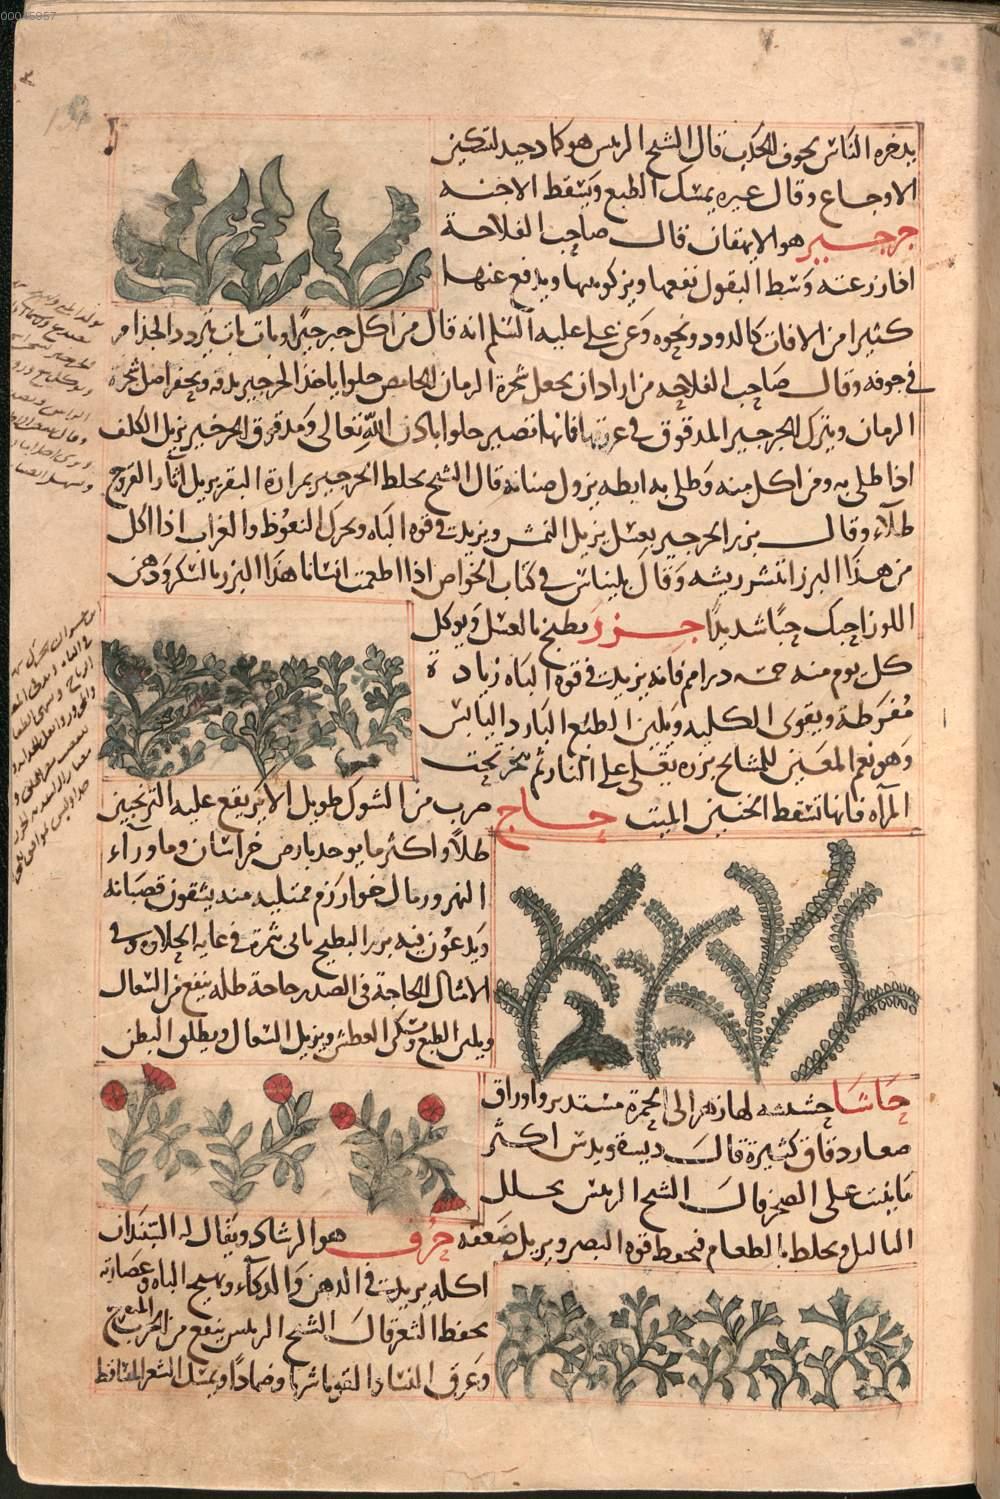 00045957
يدخره الناس بجوف الجدب قال الشيخ الرئيس هو كمادجيد لتسكين
الاوجاع وقال غيره يمسك الطبع ويسقط الاجنة
جرجير هو الايهقان قال صاحب الفلاحة
اذا زرعته وسط البقول نفعها ويزكو منها ويدفع عنها
كثيرا من الافات كالدود ونحوه وعن علي عليه السلم انه قال من اكل جرجيرا وبات بات يتردد الجذام
في جوفه وقال صاحب الفلاحه من اراد ان يجعل شجرة الرمان الحامض حلوا ياخذ الجرجير يدقه ويحفر اصل شجرة
الرمان ويترك الجرجير المدقوق في عروقها فانها تصير حلوا باذن الله تعالى ومدقوق الجرجير يزيل الكلف
اذا طلي به ومن اكل منه وطلى به ابطه يزول صنانه قال الشيخ يخلط الجرجير بمرارة البقر يزيل اثار القروح
طلاء وقال بزر الجرجير بعسل يزيل النمش ويزيد في قوة الباه ويحرك النعوظ والغراب اذا اكل
من هذا البزر انتشر ريشه وقال بليناس في كتاب الخواص اذا اطعمت انسانا هذا البزر بالسكر ودهن
اللوز احبك حبا شديدا جزر يطبخ بالعسل ويوكل
كل يوم منه خمسة دراهم فانه يزيد في قوة الباه زيادة
مفرطة ويقوى الكليه ويلين الطبع البارد اليابس
وهو نعم المعين للمشايخ بزره يقلى على النار ثم يبخر تحت
المرأه فانها تسقط الجنين الميت حاج
ضرب من الشوك طويل الابر يقع عليه الترنجبين
طلاً واكثر ما يوجد بارض خراسان وما وراء
النهر ورمال خوارزم ممتليه منه يشقون قصبانه
ويدعون فيه بزر البطيخ ياتى ثمرة في غاية الحلاوة وفى
الامثال الحاجة فى الصدر حاجة طله ينفع من السعال
ويلين الطبع ويسكن العطش ويزيل السعال ويطلق البطن
حاشا حشيشه لها زهر الى الحمرة مستدير واوراق
صغار دقاق كثيرة قال ديسقوريدس اكثر
ما ينبت على الصخر قال الشيخ الرئيس يحلل
الثاليل ويخلط بالطعام فيحفظ قوة البصر ويزيل ضعفه
حُرف هو الرشاد ويقال له السنذاب
اكله يزيد في الذهن والذكاء ويهيج الباه وعصارته
يحفظ الشعر قال الشيخ الرئيس ينفع من الجرب المتقرح
وعرق النسا والقوبا شربا وضمادا ويمسك الشعر المتساقط